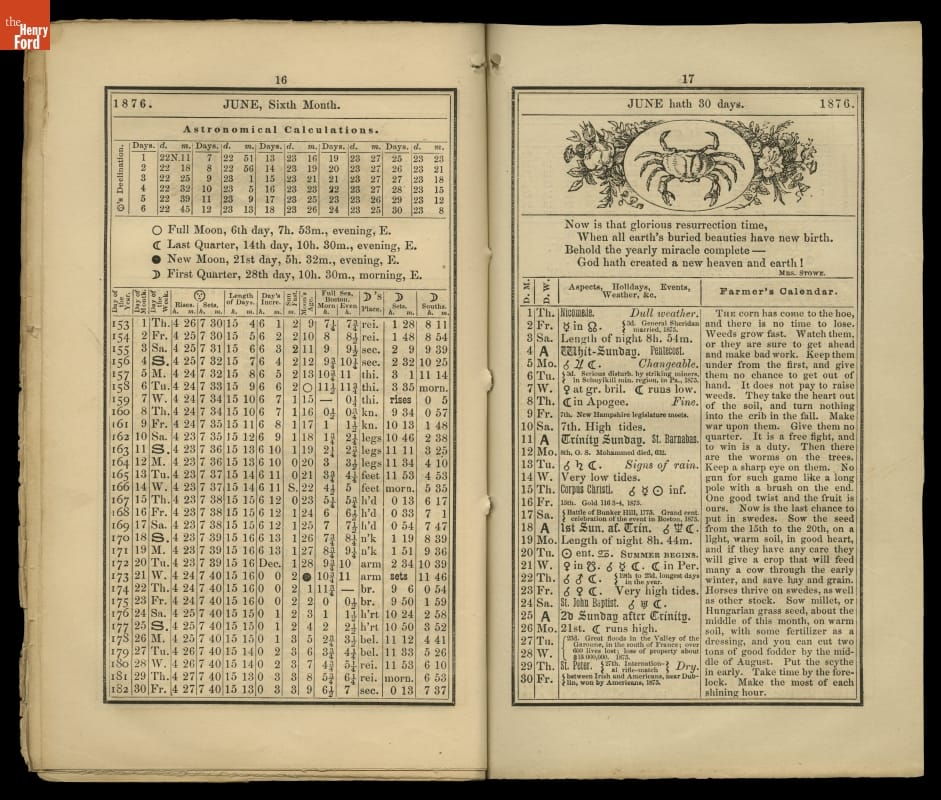 the
Henry
Ford
16
1876. JUNE, Sixth Month.
Astronomical Calculations.
☉'s Declination.
Days. d. m. Days. d. m. Days. d. m. Days. d. m. Days. d. m.
1 22N.11 7 22 51 13 23 16 19 23 27 25 23 23
2 22 18 8 22 56 14 23 19 20 23 27 26 23 21
3 22 25 9 23 1 15 23 21 21 23 27 27 23 18
4 22 32 10 23 5 16 23 23 22 23 27 28 23 15
5 22 39 11 23 9 17 23 25 23 23 26 29 23 12
6 22 45 12 23 13 18 23 26 24 23 25 30 23 8
○ Full Moon, 6th day, 7h. 53m., evening, E.
☾ Last Quarter, 14th day, 10h. 30m., evening, E.
● New Moon, 21st day, 5h. 32m., evening, E.
☽ First Quarter, 28th day, 10h. 30m., morning, E.
Day of the Year. Day of Month. Day of the Week. Rises. h. m. Sets. h. m. Length of Days. h. m. Day's Incre. h. m. Sun Fast. Moon's Age. Full Sea, Boston. Morn h. Even h. ☽'s Place. ☽ Sets. h. m. ☽ Souths. h. m.
153 1 Th. 4 26 7 30 15 4 6 1 2 9 7¼ 7¾ rei. 1 28 8 11
154 2 Fr. 4 25 7 30 15 5 6 2 2 10 8 8½ rei. 1 48 8 54
155 3 Sa. 4 25 7 31 15 6 6 3 2 11 9 9½ sec. 2 9 9 39
156 4 S. 4 25 7 32 15 7 6 4 2 12 9¾ 10¼ sec. 2 32 10 25
157 5 M. 4 24 7 32 15 8 6 5 2 13 10¾ 11 thi. 3 1 11 14
158 6 Tu. 4 24 7 33 15 9 6 6 2 ○ 11½ 11¾ thi. 3 35 morn.
159 7 W. 4 24 7 34 15 10 6 7 1 15 — 0¼ thi. rises 0 5
160 8 Th. 4 24 7 34 15 10 6 7 1 16 0½ 0¾ kn. 9 34 0 57
161 9 Fr. 4 24 7 35 15 11 6 8 1 17 1 1½ kn. 10 13 1 48
162 10 Sa. 4 23 7 35 15 12 6 9 1 18 1¾ 2¼ legs 10 46 2 38
163 11 S. 4 23 7 36 15 13 6 10 1 19 2¼ 2¾ legs 11 11 3 25
164 12 M. 4 23 7 36 15 13 6 10 0 20 3 3½ legs 11 34 4 10
165 13 Tu. 4 23 7 37 15 14 6 11 0 21 3¾ 4¼ feet 11 53 4 53
166 14 W. 4 23 7 37 15 14 6 11 S. 22 4½ 5 feet morn. 5 35
167 15 Th. 4 23 7 38 15 15 6 12 0 23 5¼ 5¾ h'd 0 13 6 17
168 16 Fr. 4 23 7 38 15 15 6 12 1 24 6 6½ h'd 0 33 7 1
169 17 Sa. 4 23 7 38 15 15 6 12 1 25 7 7½ h'd 0 54 7 47
170 18 S. 4 23 7 39 15 16 6 13 1 26 7¾ 8¼ n'k 1 19 8 39
171 19 M. 4 23 7 39 15 16 6 13 1 27 8¾ 9¼ n'k 1 51 9 36
172 20 Tu. 4 23 7 39 15 16 Dec. 1 28 9¾ 10 arm 2 34 10 39
173 21 W. 4 24 7 40 15 16 0 0 2 ● 10¾ 11 arm sets 11 46
174 22 Th. 4 24 7 40 15 16 0 0 2 1 11¾ — br. 9 6 0 54
175 23 Fr. 4 24 7 40 15 16 0 0 2 2 0 0½ br. 9 50 1 59
176 24 Sa. 4 25 7 40 15 15 0 1 2 3 1 1½ h'rt 10 24 2 58
177 25 S. 4 25 7 40 15 15 0 1 2 4 2 2½ h'rt 10 50 3 52
178 26 M. 4 25 7 40 15 15 0 1 3 5 2¾ 3½ bel. 11 12 4 41
179 27 Tu. 4 26 7 40 15 14 0 2 3 6 3¾ 4½ bel. 11 33 5 26
180 28 W. 4 26 7 40 15 14 0 2 3 7 4¾ 5¼ rei. 11 53 6 10
181 29 Th. 4 27 7 40 15 13 0 3 3 8 5¾ 6¼ rei. morn. 6 53
182 30 Fr. 4 27 7 40 15 13 0 3 3 9 6½ 7 sec. 0 13 7 37
17
JUNE hath 30 days. 1876.
Now is that glorious resurrection time,
When all earth's buried beauties have new birth.
Behold the yearly miracle complete—
God hath created a new heaven and earth!
MRS. STOWE.
D. M. D. W. Aspects, Holidays, Events, Weather, &c.
1 Th. Nicomede. Dull weather.
2 Fr. ☿ in ☊. {3d. General Sheridan married, 1875.
3 Sa. Length of night 8h. 54m.
4 A Whit-Sunday. Pentecost.
5 Mo. ☌ ♃ ☾. Changeable.
6 Tu. {3d. Serious disturb. by striking miners, in Schuylkill min. region, in Pa., 1875.
7 W. ♀ at gr. bril. ☾ runs low.
8 Th. ☾ in Apogee. Fine.
9 Fr. 7th. New Hampshire legislature meets.
10 Sa. 7th. High tides.
11 A Trinity Sunday. St. Barnabas.
12 Mo. 8th, O. S. Mohammed died, 632.
13 Tu. ☌ ♄ ☾. Signs of rain.
14 W. Very low tides.
15 Th. Corpus Christi. ☌ ☿ ☉ inf.
16 Fr. 15th. Gold 116 3-4, 1875.
17 Sa. {Battle of Bunker Hill, 1775. Grand cent. celebration of the event in Boston, 1875.
18 A 1st Sun. af. Trin. ☌ ♆ ☾.
19 Mo. Length of night 8h. 44m.
20 Tu. ☉ ent. ♋. SUMMER BEGINS.
21 W. ♀ in ☋. ☌ ☿ ☾. ☾ in Per.
22 Th. ☌ ♂ ☾. {19th to 22d, longest days in the year.
23 Fr. ☌ ♀ ☾. Very high tides.
24 Sa. St. John Baptist. ☌ ♅ ☾.
25 A 2d Sunday after Trinity.
26 Mo. 21st. ☾ runs high.
27 Tu. {23d. Great floods in the Valley of the Garonne, in the south of France; over
28 W. 600 lives lost; loss of property about $15,000,000. 1875.
29 Th. St. Peter. {27th. International rifle-match} Dry.
30 Fr. {between Irish and Americans, near Dublin, won by Americans, 1875.
Farmer's Calendar.
THE corn has come to the hoe,
and there is no time to lose.
Weeds grow fast. Watch them,
or they are sure to get ahead
and make bad work. Keep them
under from the first, and give
them no chance to get out of
hand. It does not pay to raise
weeds. They take the heart out
of the soil, and turn nothing
into the crib in the fall. Make
war upon them. Give them no
quarter. It is a free fight, and
to win is a duty. Then there
are the worms on the trees.
Keep a sharp eye on them. No
gun for such game like a long
pole with a brush on the end.
One good twist and the fruit is
ours. Now is the last chance to
put in swedes. Sow the seed
from the 15th to the 20th, on a
light, warm soil, in good heart,
and if they have any care they
will give a crop that will feed
many a cow through the early
winter, and save hay and grain.
Horses thrive on swedes, as well
as other stock. Sow millet, or
Hungarian grass seed, about the
middle of this month, on warm
soil, with some fertilizer as a
dressing, and you can cut two
tons of good fodder by the mid-
dle of August. Put the scythe
in early. Take time by the fore-
lock. Make the most of each
shining hour.